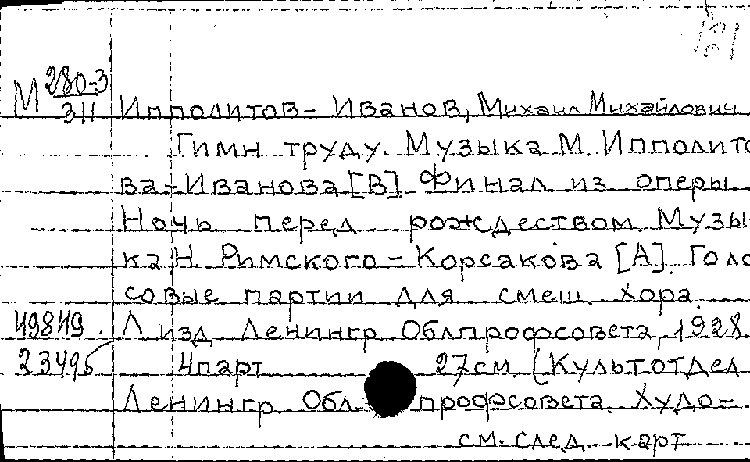 М 280-3
311 Ипполитов-Иванов, Михаил Михайлович
Гимн труду. Музыка М. Ипполито
ва-Иванова [В]. Финал из оперы
Ночь перед рождеством. Музы
ка Н. Римского-Корсакова [А]. Голо
совые партии для смеш. хора.
49849. Л изд Ленингр. Облпрофсовета, 1928
23495 4парт 27см. (Культотдел
Ленингр Облпрофсовета. Худо-
см. след. карт